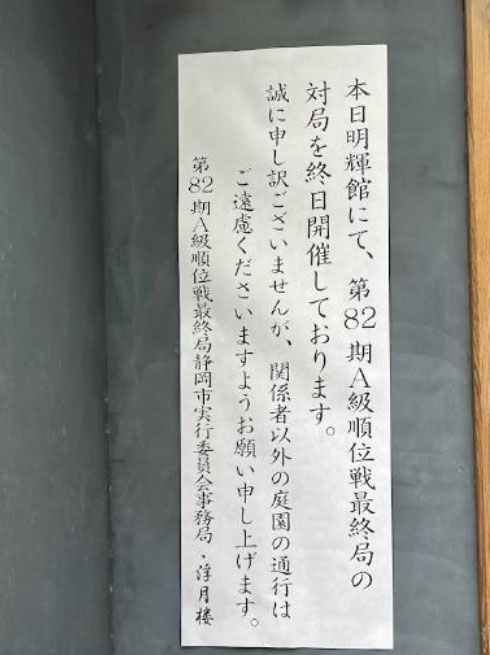 本日明輝館にて、第82期A級順位戦最終局の
対局を終日開催しております。
誠に申し訳ございませんが、関係者以外の庭園の通行は
ご遠慮くださいますようお願い申し上げます。
第82期A級順位戦最終局静岡市実行委員会事務局・浮月楼